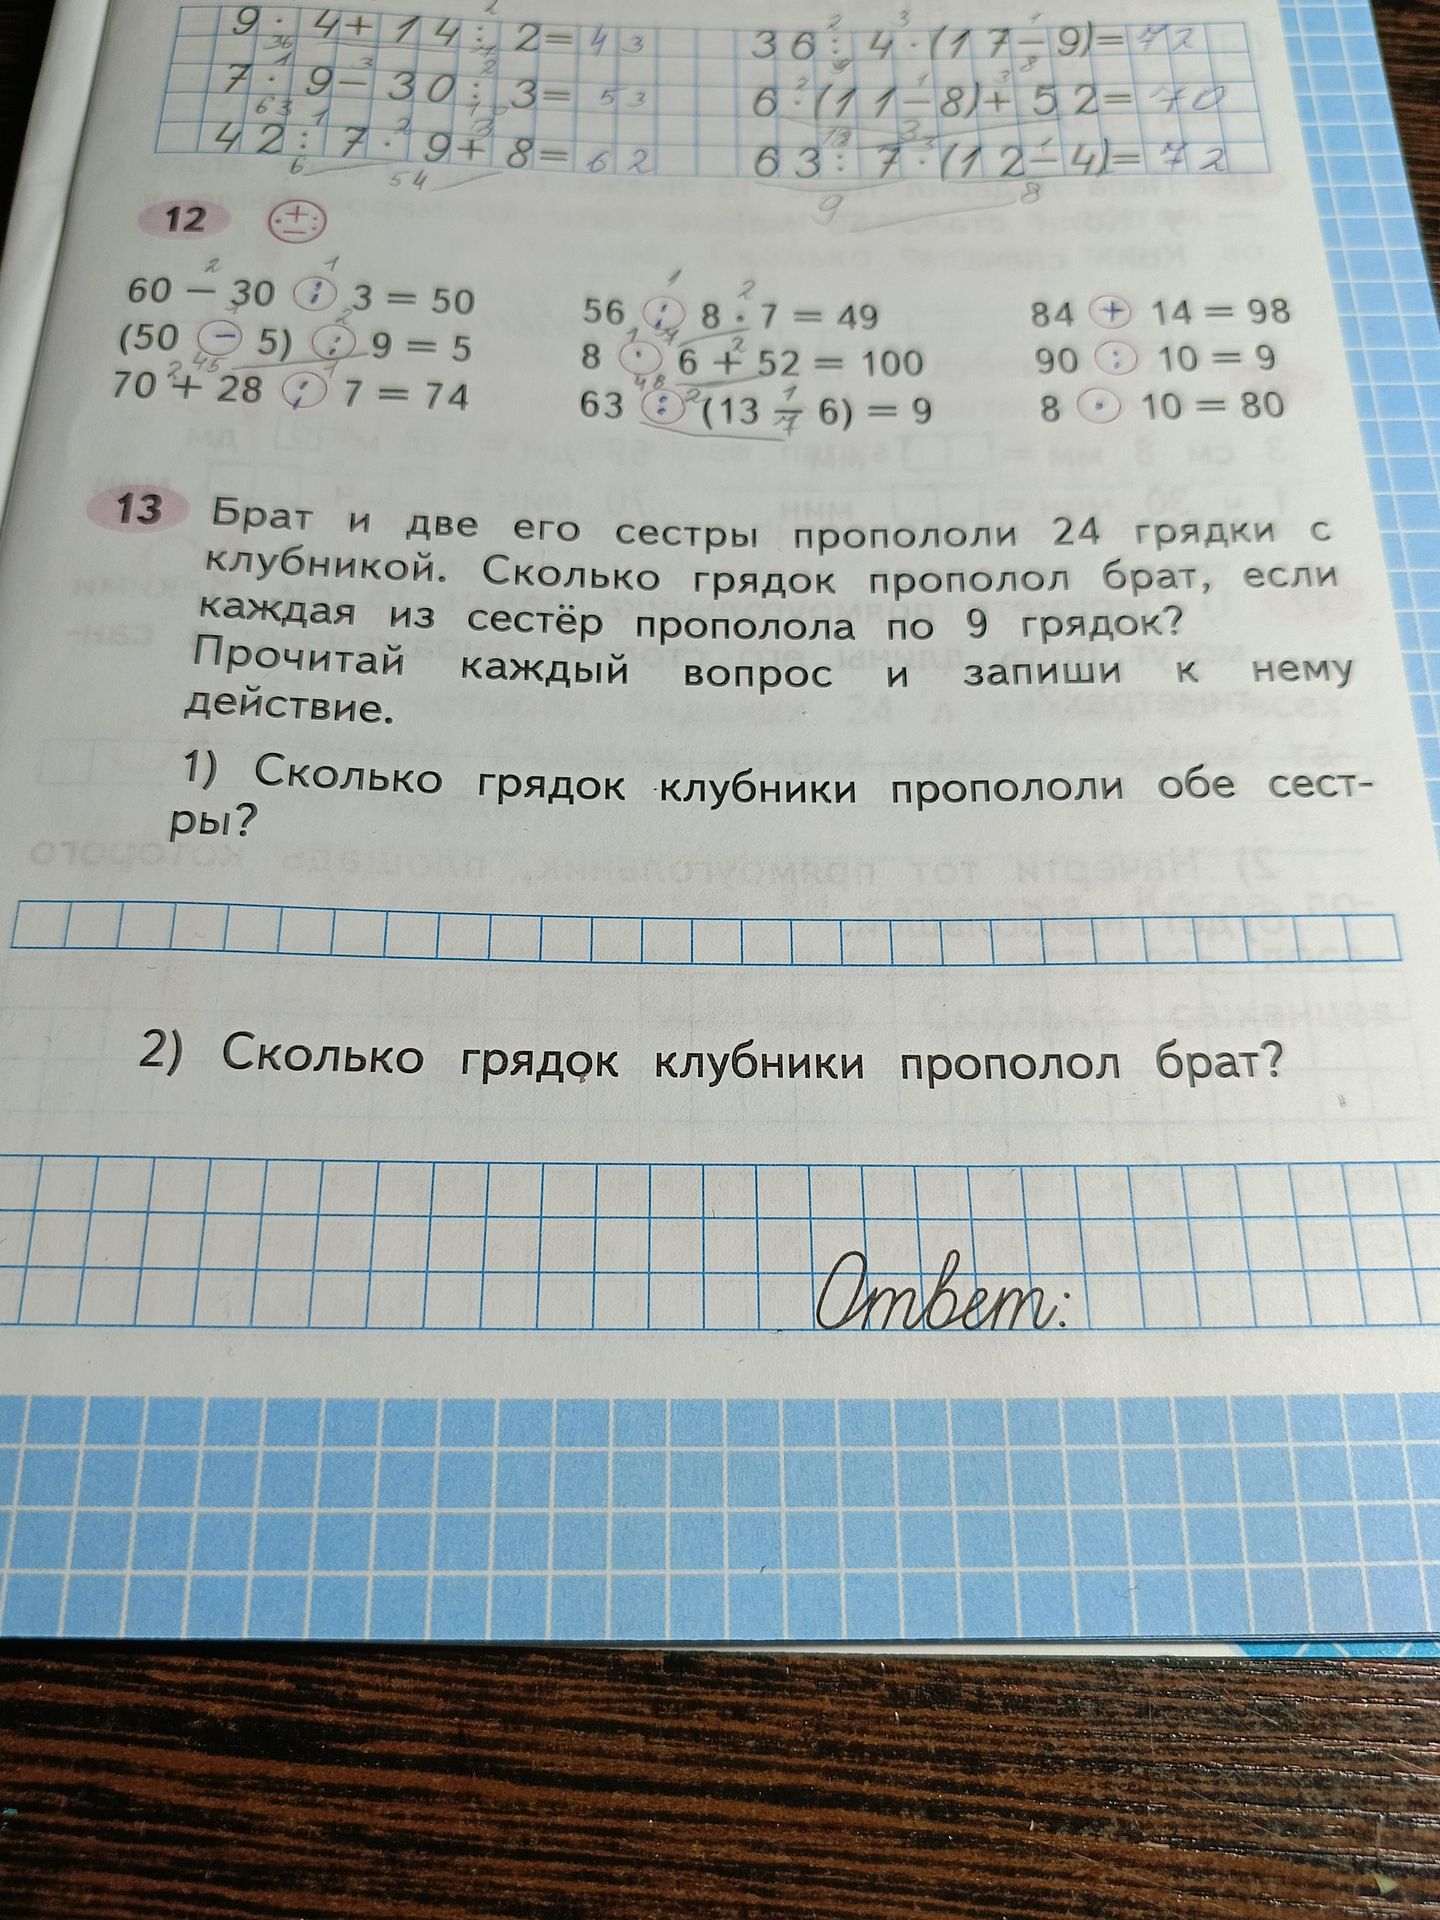 9 · 4 + 14 : 2 = 43
36 : 4 · (17 − 9) = 72
7 · 9 − 30 : 3 = 53
6 · (11 − 8) + 52 = 70
42 : 7 · 9 + 8 = 62
63 : 7 · (12 − 4) = 72
6
54
9
8
12
60 − 30 : 3 = 50
56 : 8 · 7 = 49
84 + 14 = 98
(50 − 5) : 9 = 5
8 · 6 + 52 = 100
90 : 10 = 9
70 + 28 : 7 = 74
63 : (13 − 6) = 9
8 · 10 = 80
13 Брат и две его сестры пропололи 24 грядки с
клубникой. Сколько грядок прополол брат, если
каждая из сестёр прополола по 9 грядок?
Прочитай каждый вопрос и запиши к нему
действие.
1) Сколько грядок клубники пропололи обе сест-
ры?
2) Сколько грядок клубники прополол брат?
Ответ: